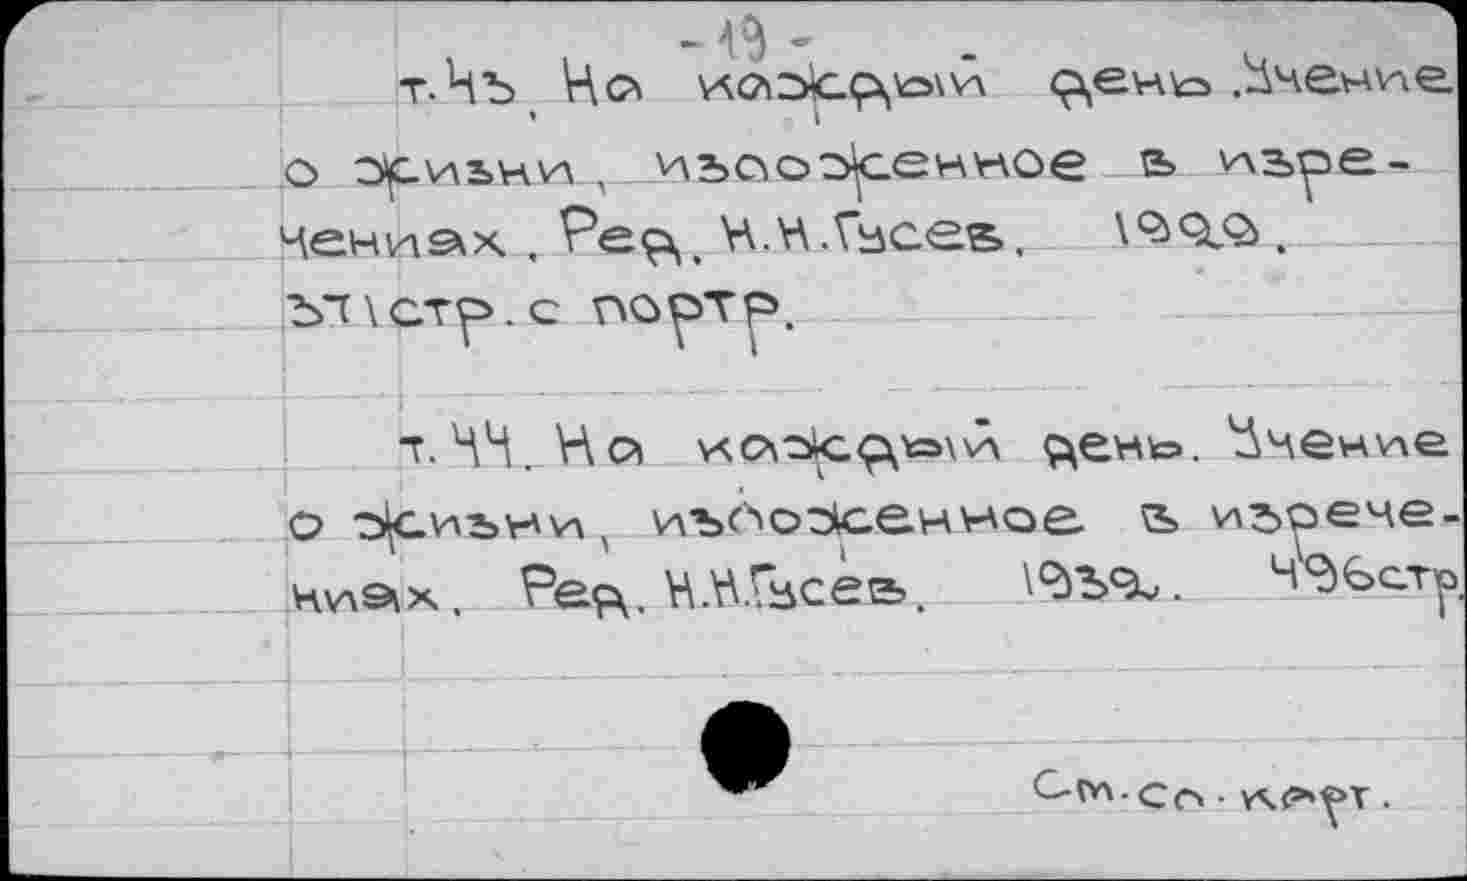 - 19 -
т.43. На каждый день. Учение
о жизни, изложенное в изре-
чениях. Ред. Н.Н.Гусев. 1929.
371стр. с портр.
т.44. На каждый день. Учение
о жизни, изложенное в изрече-
ниях. Ред. Н.Н.Гусев. 1932. 496стр.
См. сл. карт.